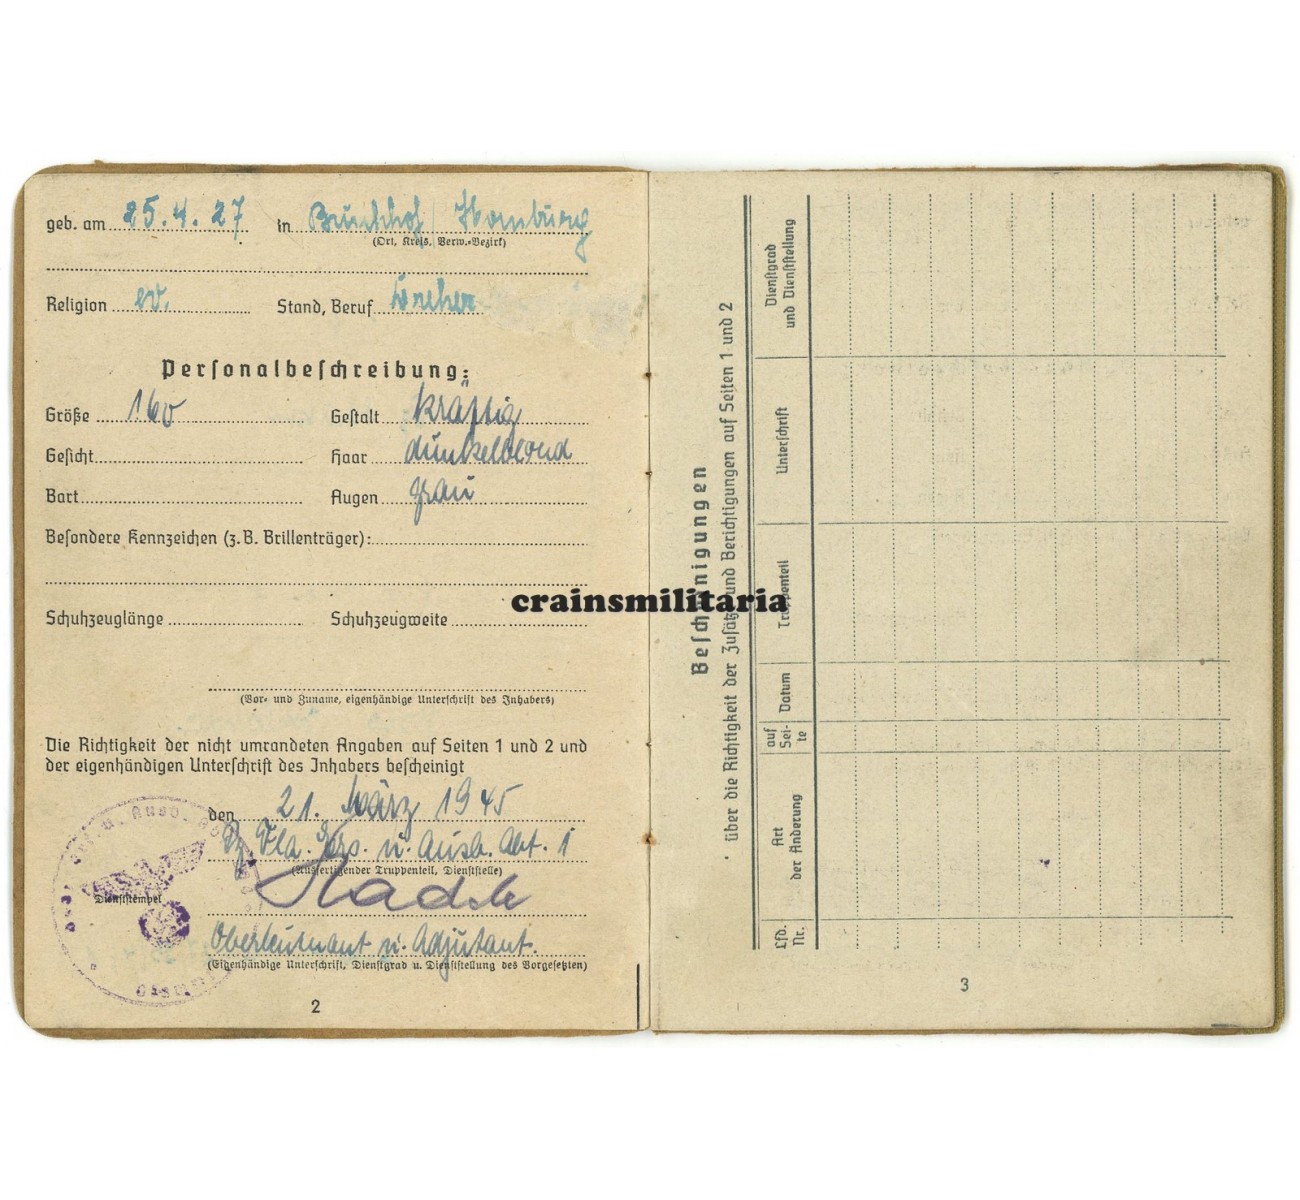 geb. am 25.4.27 in Bruchhof / Homburg
(Ort, Kreis, Verw.-Bezirk)
Religion ev. Stand, Beruf Dreher
Personalbeschreibung:
Größe 160 Gestalt kräftig
Gesicht Haar dunkelblond
Bart Augen grau
Besondere Kennzeichen (z.B. Brillenträger):
Schuhzeuglänge Schuhzeugweite
(Vor- und Zuname, eigenhändige Unterschrift des Inhabers)
Die Richtigkeit der nicht umrandeten Angaben auf Seiten 1 und 2 und
der eigenhändigen Unterschrift des Inhabers bescheinigt
den 21. März 1945
Pz. Fla. Ers. u. Ausb. Abt. 1
(Ausfertigender Truppenteil, Dienststelle)
Dienststempel
Oberleutnant u. Adjutant.
(Eigenhändige Unterschrift, Dienstgrad u. Dienststellung des Vorgesetzten)
2
crainsmilitaria
Bescheinigungen
über die Richtigkeit der Zusätze und Berichtigungen auf Seiten 1 und 2
Lfd. Nr.
Art der Änderung
auf Sei-te
Datum
Truppenteil
Unterschrift
Dienstgrad und Dienststellung
3